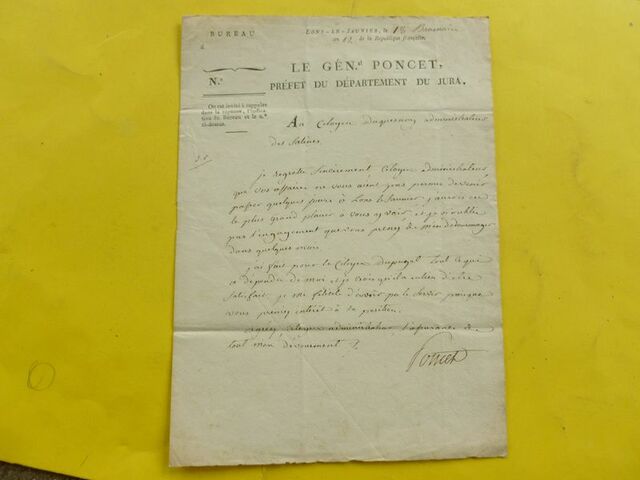 BUREAU
LONS-LE-SAUNIER, le 1er Brumaire
an 12 de la République française.
LE GÉN.al PONCET,
PRÉFET DU DÉPARTEMENT DU JURA.
N.o
On est invité à rappeler
dans la réponse, l'indica-
tion du Bureau et le n.o
ci-dessus.
Au Citoyen Duquesnoy administrateur
des Salines.
je regrette sincèrement, Citoyen administrateur,
que vos affaires ne vous aient pas permis de venir
passer quelques jours à Lons le Saunier, j'aurois eu
le plus grand plaisir à vous y voir, et je n'oublie
pas l'engagement que vous prenez de m'en dédommager
dans quelques mois.
j'ai fait pour le Citoyen tout ce qui
a dépendu de moi et je crois qu'il a lieu d'être
satisfait, je me félicite d'avoir pu le servir puisque
vous prenez intérêt à sa position.
agréez, Citoyen administrateur, l'assurance de
tout mon dévouement.
Poncet